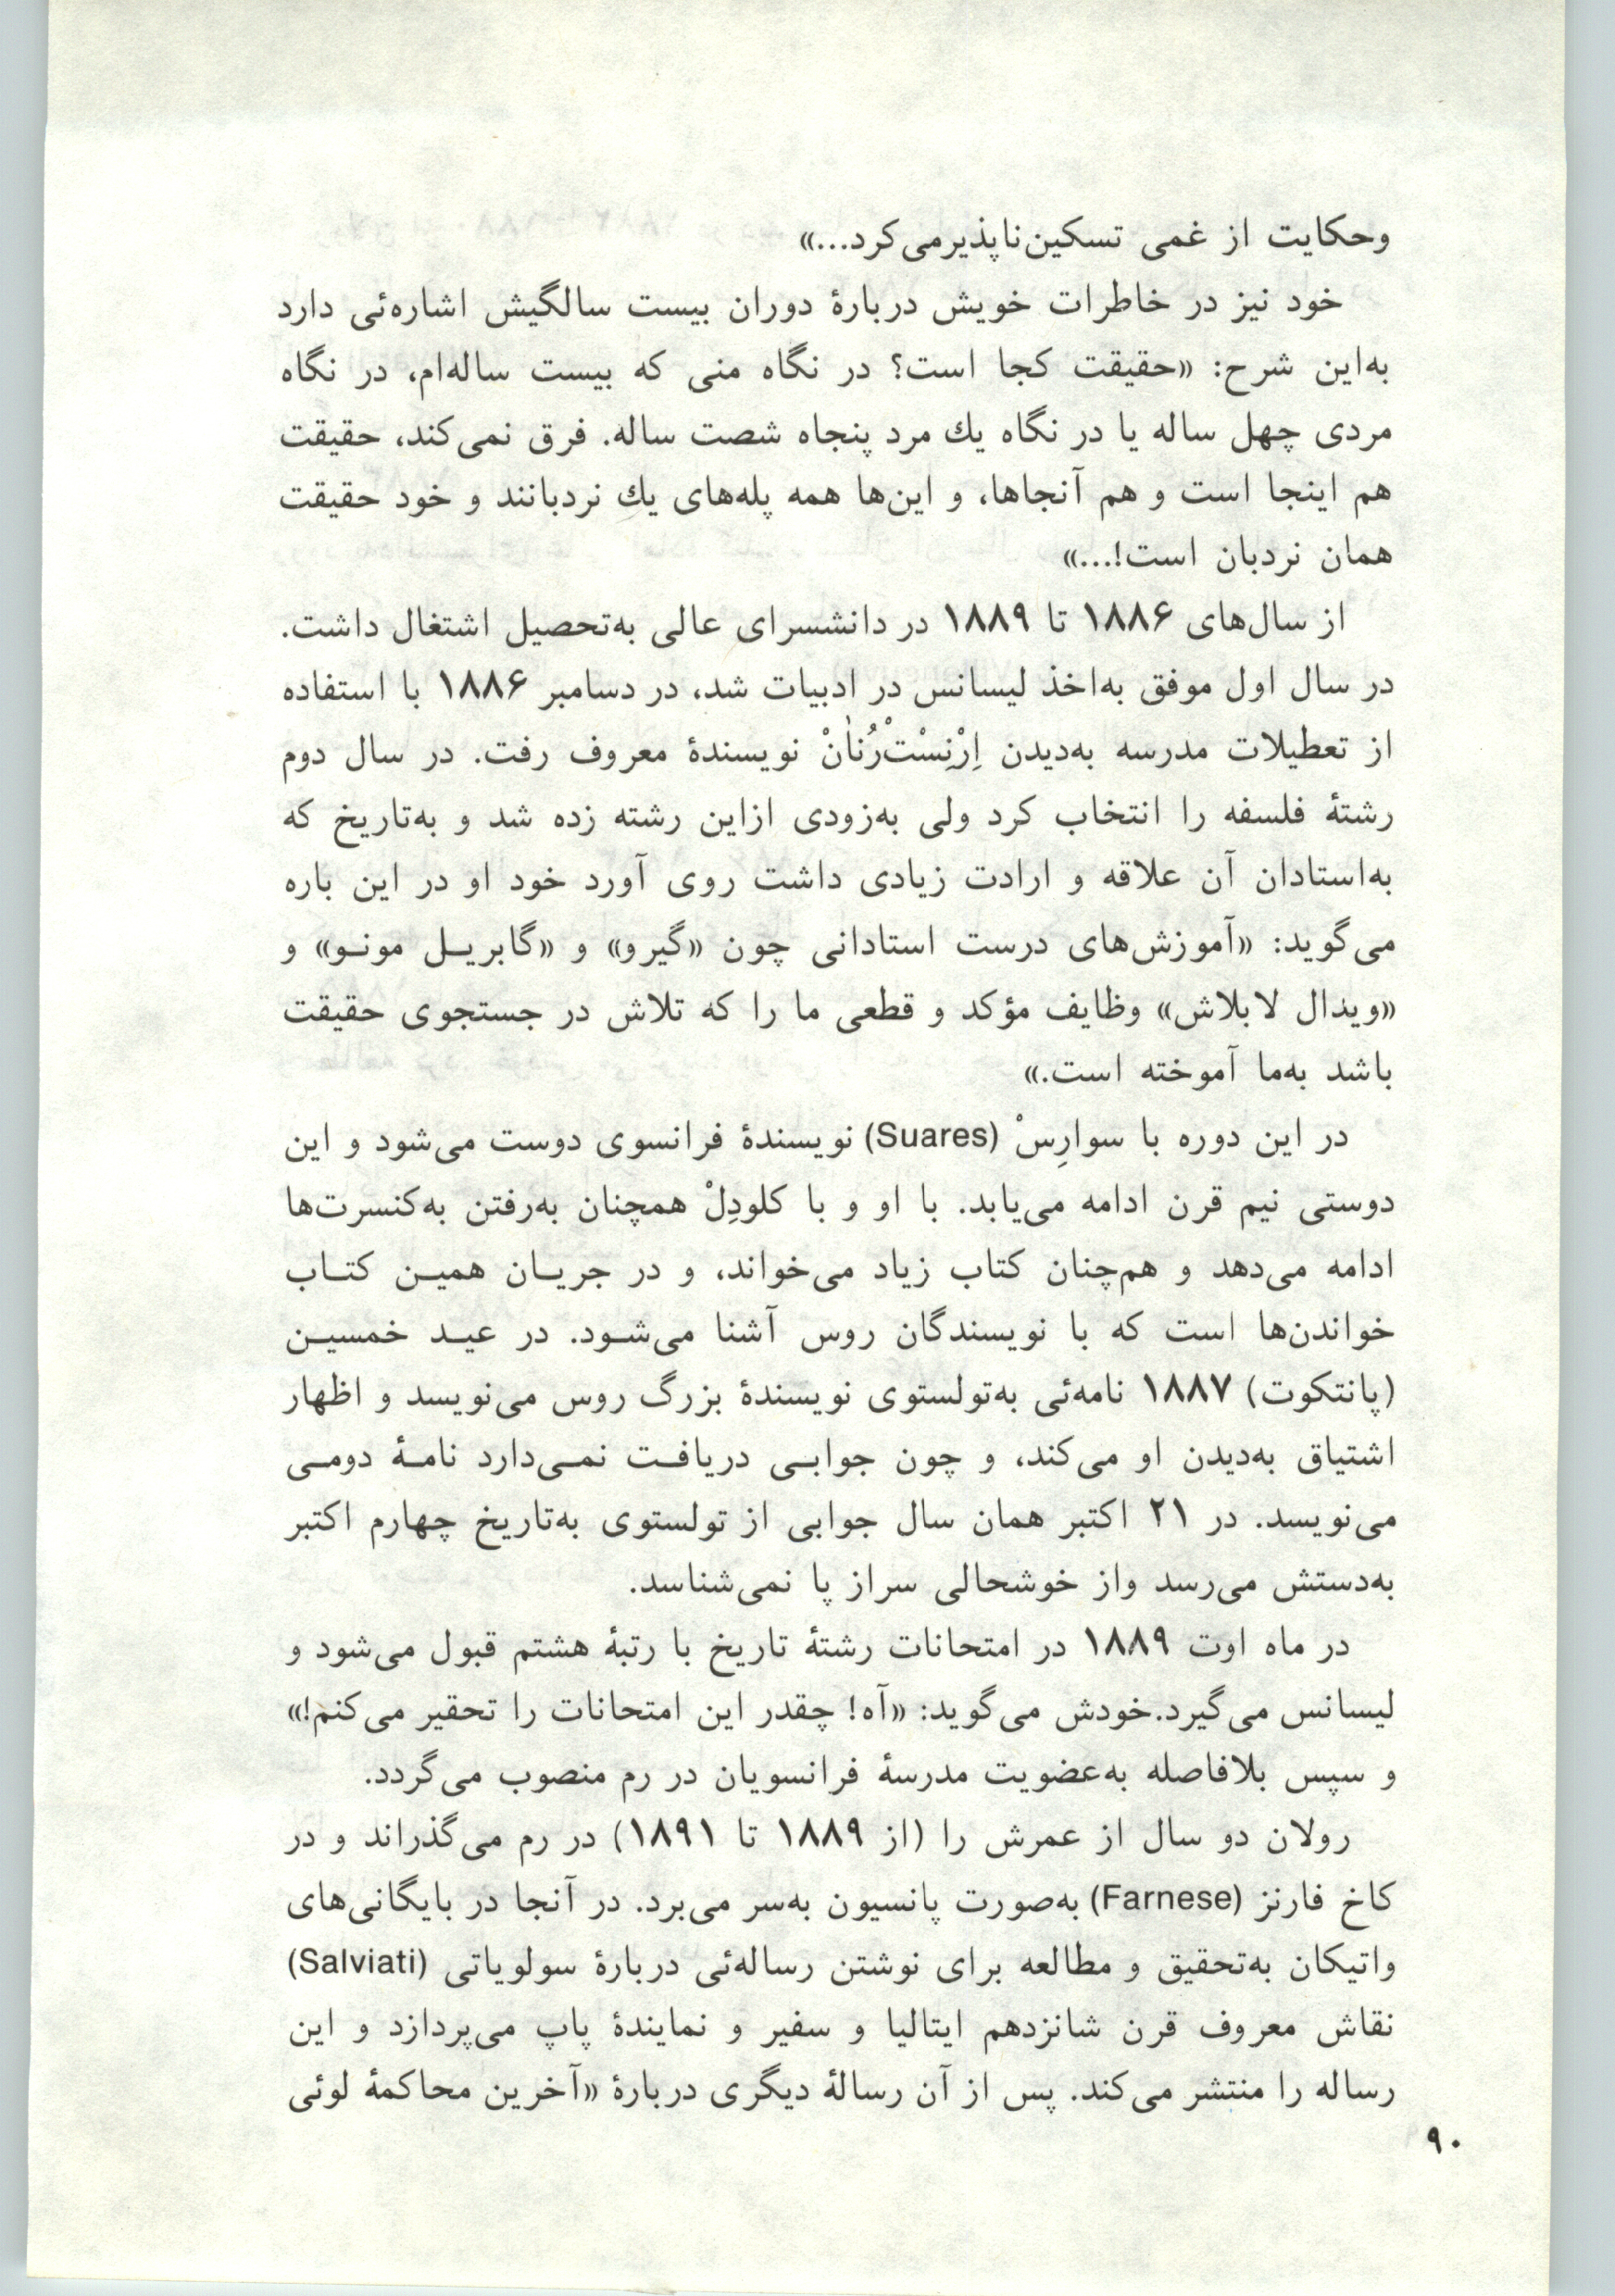 وحکایت از غمی تسکین‌ناپذیرمی‌کرد...»
خود نیز در خاطرات خویش دربارهٔ دوران بیست سالگیش اشاره‌ئی دارد
به‌این شرح: «حقیقت کجا است؟ در نگاه منی که بیست ساله‌ام، در نگاه
مردی چهل ساله یا در نگاه یك مرد پنجاه شصت ساله. فرق نمی‌کند، حقیقت
هم اینجا است و هم آنجاها، و این‌ها همه پله‌های یك نردبانند و خود حقیقت
همان نردبان است!...»
از سال‌های ۱۸۸۶ تا ۱۸۸۹ در دانشسرای عالی به‌تحصیل اشتغال داشت.
در سال اول موفق به‌اخذ لیسانس در ادبیات شد، در دسامبر ۱۸۸۶ با استفاده
از تعطیلات مدرسه به‌دیدن اِرْنِسْتْ‌رُنانْ نویسندهٔ معروف رفت. در سال دوم
رشتهٔ فلسفه را انتخاب کرد ولی به‌زودی ازاین رشته زده شد و به‌تاریخ که
به‌استادان آن علاقه و ارادت زیادی داشت روی آورد خود او در این باره
می‌گوید: «آموزش‌های درست استادانی چون «گیرو» و «گابریـل مونـو» و
«ویدال لابلاش» وظایف مؤکد و قطعی ما را که تلاش در جستجوی حقیقت
باشد به‌ما آموخته است.»
در این دوره با سوارِسْ (Suares) نویسندهٔ فرانسوی دوست می‌شود و این
دوستی نیم قرن ادامه می‌یابد. با او و با کلودِلْ همچنان به‌رفتن به‌کنسرت‌ها
ادامه می‌دهد و هم‌چنان کتاب زیاد می‌خواند، و در جریـان همیـن کتـاب
خواندن‌ها است که با نویسندگان روس آشنا می‌شـود. در عیـد خمسیـن
(پانتکوت) ۱۸۸۷ نامه‌ئی به‌تولستوی نویسندهٔ بزرگ روس می‌نویسد و اظهار
اشتیاق به‌دیدن او می‌کند، و چون جوابـی دریافـت نمـی‌دارد نامـهٔ دومـی
می‌نویسد. در ۲۱ اکتبر همان سال جوابی از تولستوی به‌تاریخ چهارم اکتبر
به‌دستش می‌رسد واز خوشحالی سراز پا نمی‌شناسد.
در ماه اوت ۱۸۸۹ در امتحانات رشتهٔ تاریخ با رتبهٔ هشتم قبول می‌شود و
لیسانس می‌گیرد.خودش می‌گوید: «آه! چقدر این امتحانات را تحقیر می‌کنم!»
و سپس بلافاصله به‌عضویت مدرسهٔ فرانسویان در رم منصوب می‌گردد.
رولان دو سال از عمرش را (از ۱۸۸۹ تا ۱۸۹۱) در رم می‌گذراند و در
کاخ فارنز (Farnese) به‌صورت پانسیون به‌سر می‌برد. در آنجا در بایگانی‌های
واتیکان به‌تحقیق و مطالعه برای نوشتن رساله‌ئی دربارهٔ سولویاتی (Salviati)
نقاش معروف قرن شانزدهم ایتالیا و سفیر و نمایندهٔ پاپ می‌پردازد و این
رساله را منتشر می‌کند. پس از آن رسالهٔ دیگری دربارهٔ «آخرین محاکمهٔ لوئی
۹۰